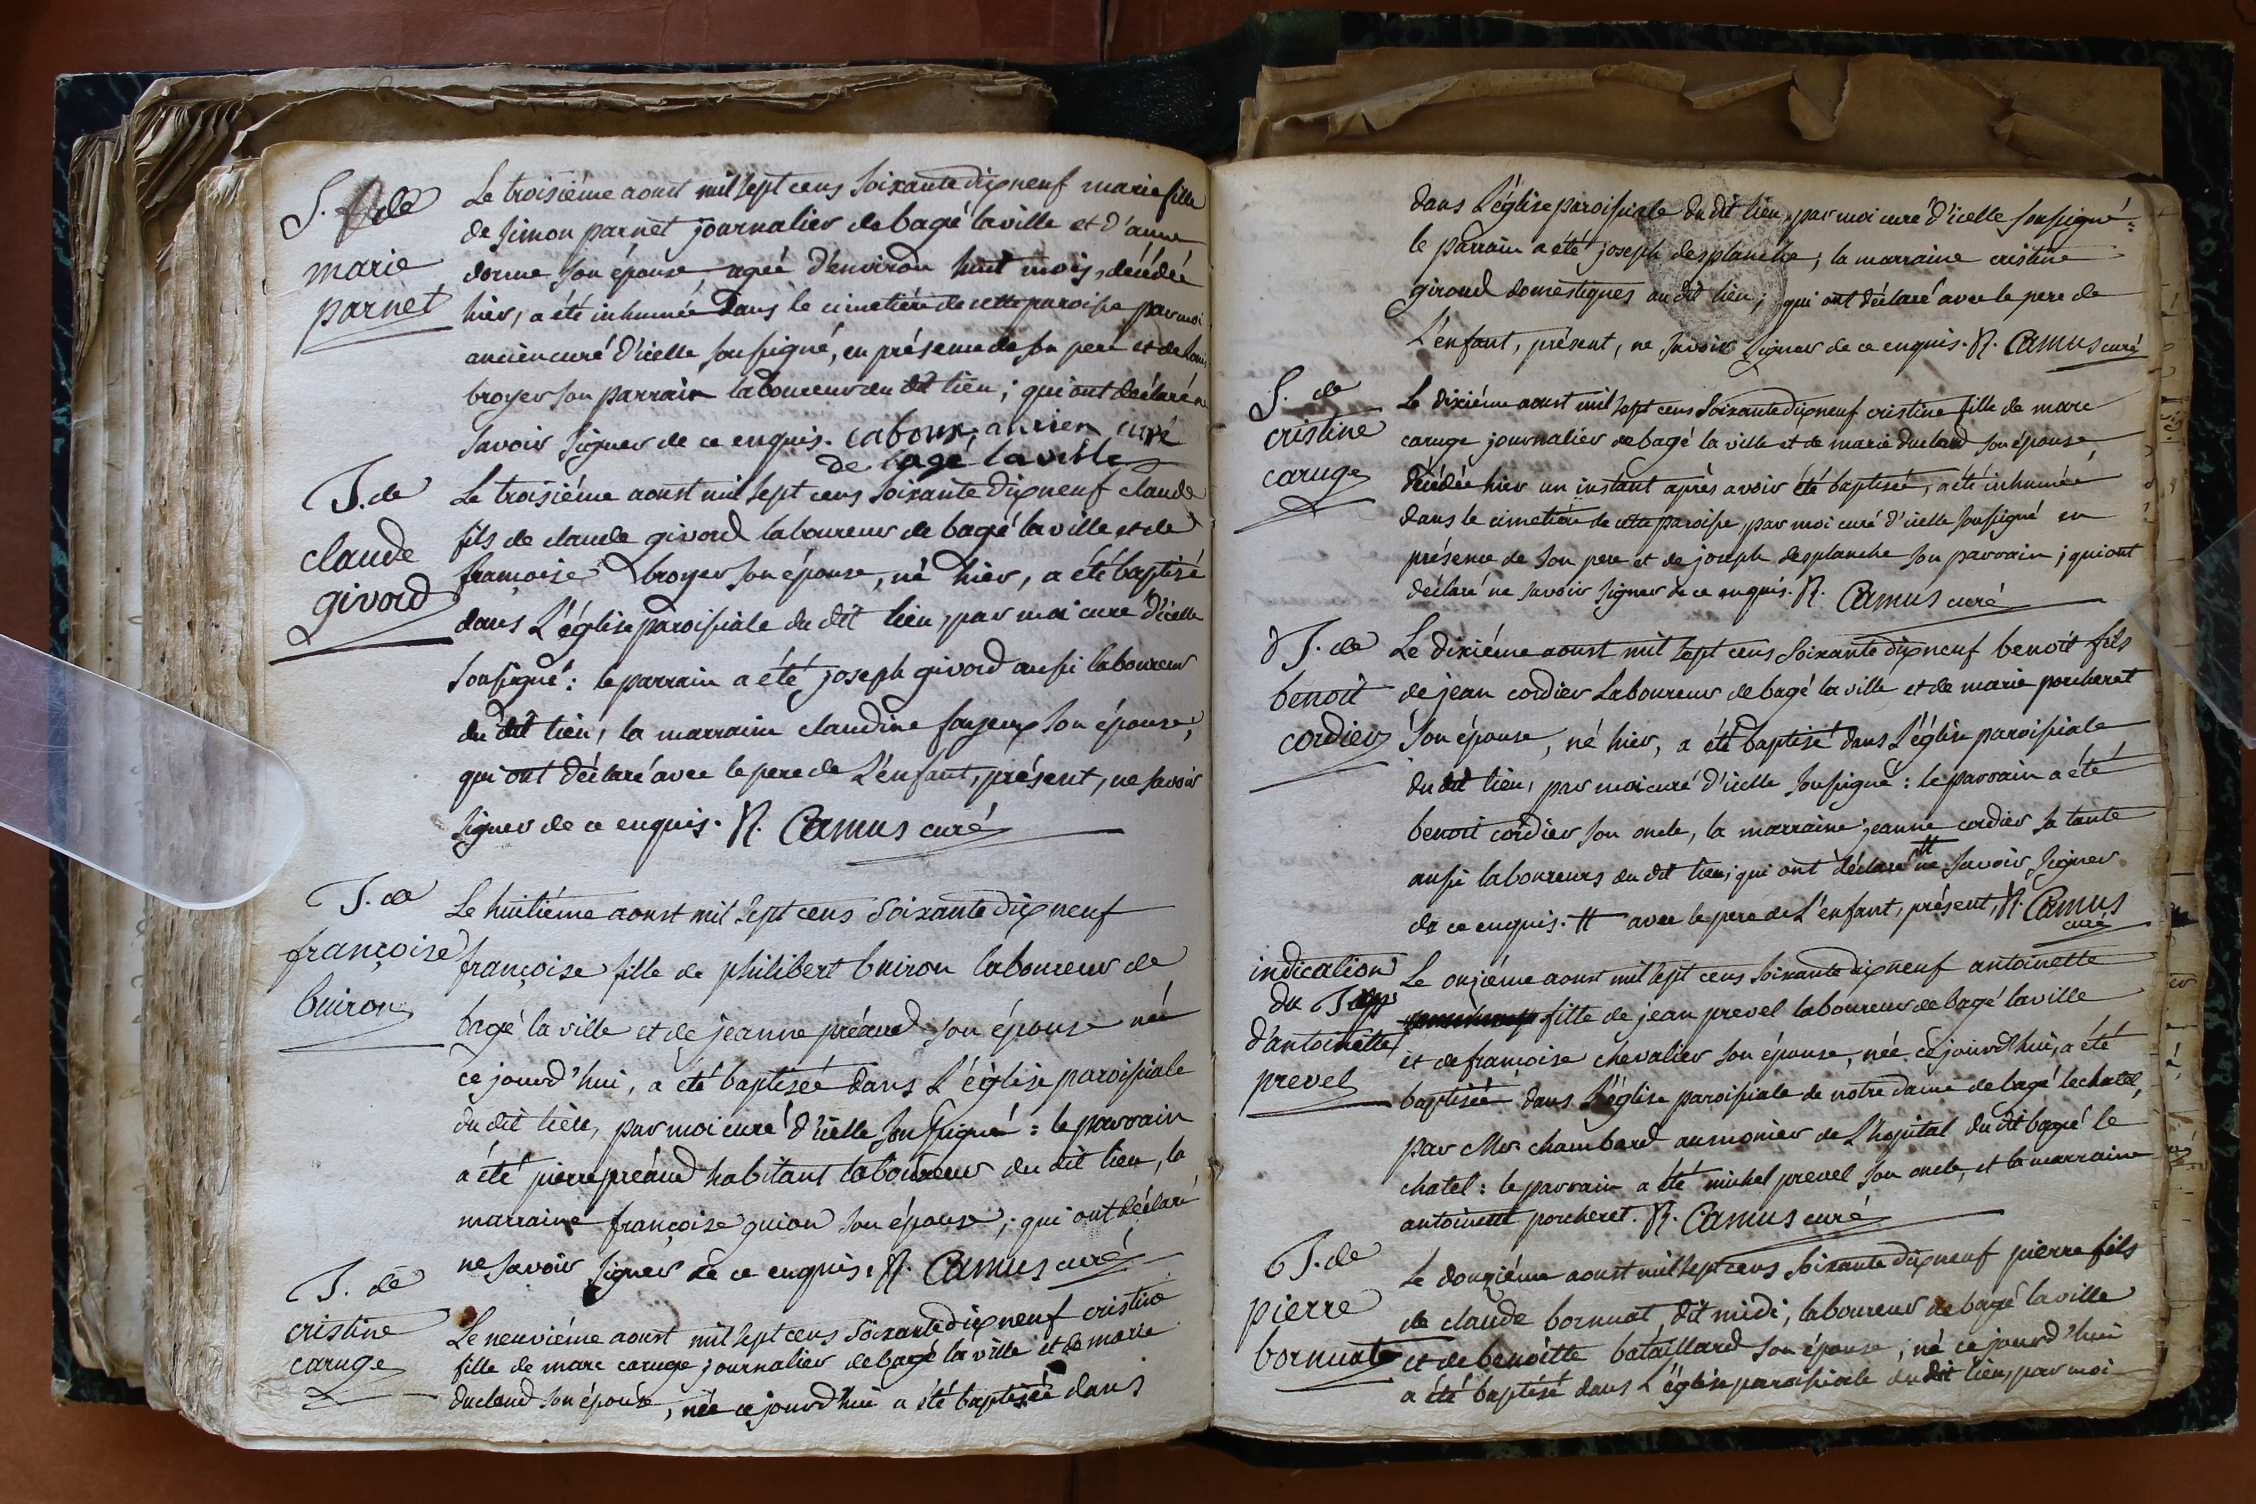 S. de
marie
parnet
Le troisiéme aoust mil sept cens soixante dix neuf marie fille
de simon parnet journalier de bagé la ville et d'anne
dorme son épouse, agée d'environ huit mois, décédée
hier, a été inhumée dans le cimetiére de cette paroisse par moi
ancien curé d'icelle soussigné, en présence de son pere et de
broyer son parrain laboureur du dit lieu; qui ont déclaré ne
savoir signer de ce enquis. caboux, ancien curé
de bagé la ville
J. de
claude
givord
Le troisiéme aoust mil sept cens soixante dix neuf claude
fils de claude givord laboureur de bagé la ville et de
françoise broyer son épouse, né hier, a été baptisé
dans L'église paroissiale du dit lieu, par moi curé d'icelle
soussigné: le parrain a été joseph givord aussi laboureur
du dit lieu, la marraine claudine son épouse;
qui ont déclaré avec le pere de L'enfant, présent, ne savoir
signer de ce enquis. N. Camus curé
J. de
françoise
buiron
Le huitiéme aoust mil sept cens soixante dix neuf
françoise fille de philibert buiron laboureur de
bagé la ville et de jeanne préaud son épouse née
ce jourd'hui, a été baptisée dans L'église paroissiale
du dit lieu, par moi curé d'icelle soussigné: le parrain
a été pierre préaud habitant laboureur du dit lieu, la
marraine françoise guion son épouse; qui ont déclaré
ne savoir signer de ce enquis. N. Camus curé
J. de
cristine
caruge
Le neuviéme aoust mil sept cens soixante dix neuf cristine
fille de marc caruge journalier de bagé la ville et de marie
ducloud son épouse, née ce jourd'hui a été baptisée dans
dans L'église paroissiale du dit lieu, par moi curé d'icelle soussigné:
le parrain a été joseph desplanche; la marraine cristine
giroud domestiques au dit lieu; qui ont déclaré avec le pere de
L'enfant, présent, ne savoir signer de ce enquis. N. Camus curé
S. de
cristine
caruge
Le dixiéme aoust mil sept cens soixante dix neuf cristine fille de marc
caruge journalier de bagé la ville et de marie ducloud son épouse,
décédée hier un instant après avoir été baptisée, a été inhumée
dans le cimetiére de cette paroisse, par moi curé d'icelle soussigné en
présence de son pere et de joseph desplanche son parrain; qui ont
déclaré ne savoir signer de ce enquis. N. Camus curé
J. de
benoit
cordier
Le dixiéme aoust mil sept cens soixante dix neuf benoit fils
de jean cordier Laboureur de bagé la ville et de marie porcheret
son épouse, né hier, a été baptisé dans L'église paroissiale
du dit lieu, par moi curé d'icelle soussigné: le parrain a été
benoit cordier son oncle, la marraine jeanne cordier sa tante
aussi laboureurs du dit lieu; qui ont déclaré # ne savoir signer
de ce enquis. # avec le pere de L'enfant, présent, N. Camus
curé
indication
du
d'antoinette
prevel
Le onziéme aoust mil sept cens soixante dix neuf antoinette
fille de jean prevel laboureur de bagé la ville
et de françoise chevalier son épouse, née ce jourd'hui, a été
baptisée dans L'église paroissiale de notre dame de bagé le chatel,
par Mr chambard aumonier de L'hopital du dit bagé le
chatel: le parrain a été michel prevel son oncle, et la marraine
antoinette porcheret. N. Camus curé
J. de
pierre
bornuat
Le douziéme aoust mil sept cens soixante dix neuf pierre fils
de claude bornuat, dit midi, laboureur de bagé la ville
et de benoitte bataillard son épouse, né ce jourd'hui
a été baptisé dans L'église paroissiale du dit lieu, par moi